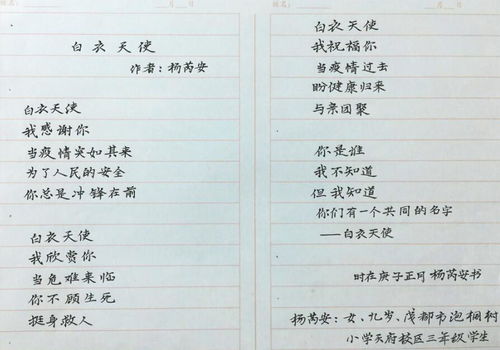 白衣天使
作者：杨芮安
白衣天使
我感谢你
当疫情突如其来
为了人民的安全
你总是冲锋在前
白衣天使
我欣赏你
当危难来临
你不顾生死
挺身救人
白衣天使
我祝福你
当疫情过去
盼健康归来
与亲团聚
你是谁
我不知道
但我知道
你们有一个共同的名字
——白衣天使
时在庚子正月杨芮安书
杨芮安：女、九岁、成都市泡桐树
小学天府校区三年级学生